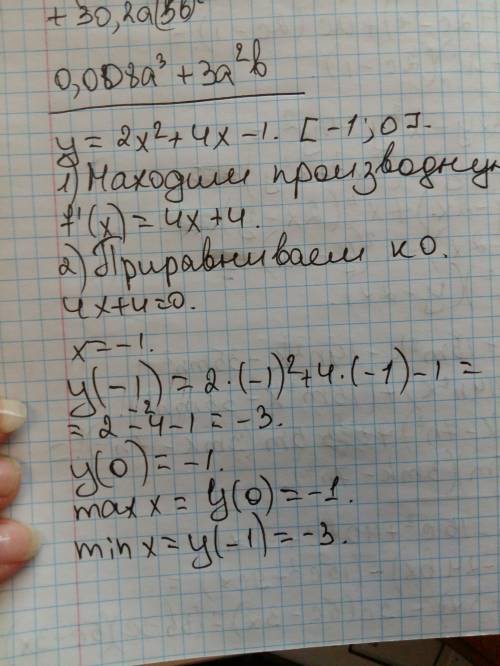 + 30,2a(5b)²
0,008a³ + 3a²b
y = 2x² + 4x - 1. [-1; 0].
1) Находим производную
f'(x) = 4x + 4.
2) Приравниваем к 0.
4x+4=0.
x = -1.
y(-1) = 2·(-1)² + 4·(-1) - 1 =
= 2 - 4 - 1 = -3.
y(0) = -1.
max x = y(0) = -1.
min x = y(-1) = -3.